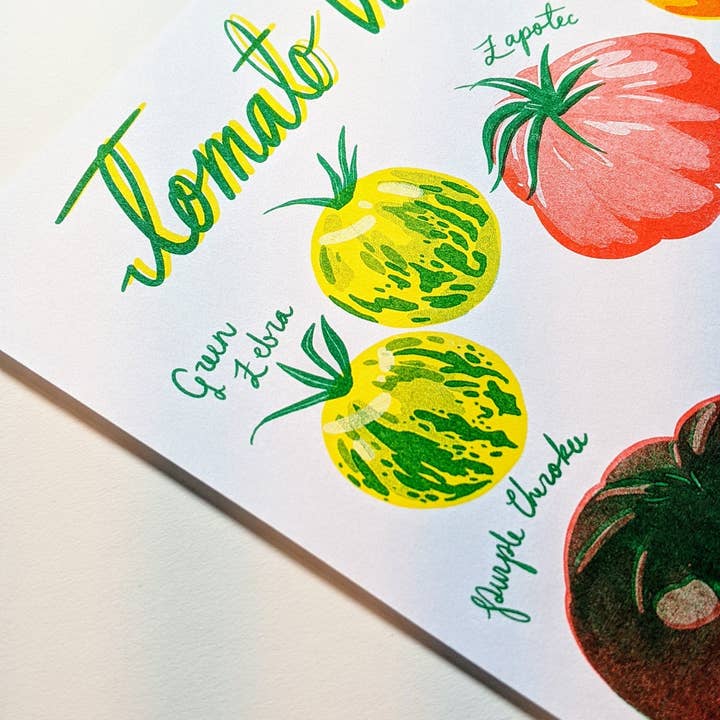 Tomato
Zapotec
Green
Zebra
Purple Cherokee